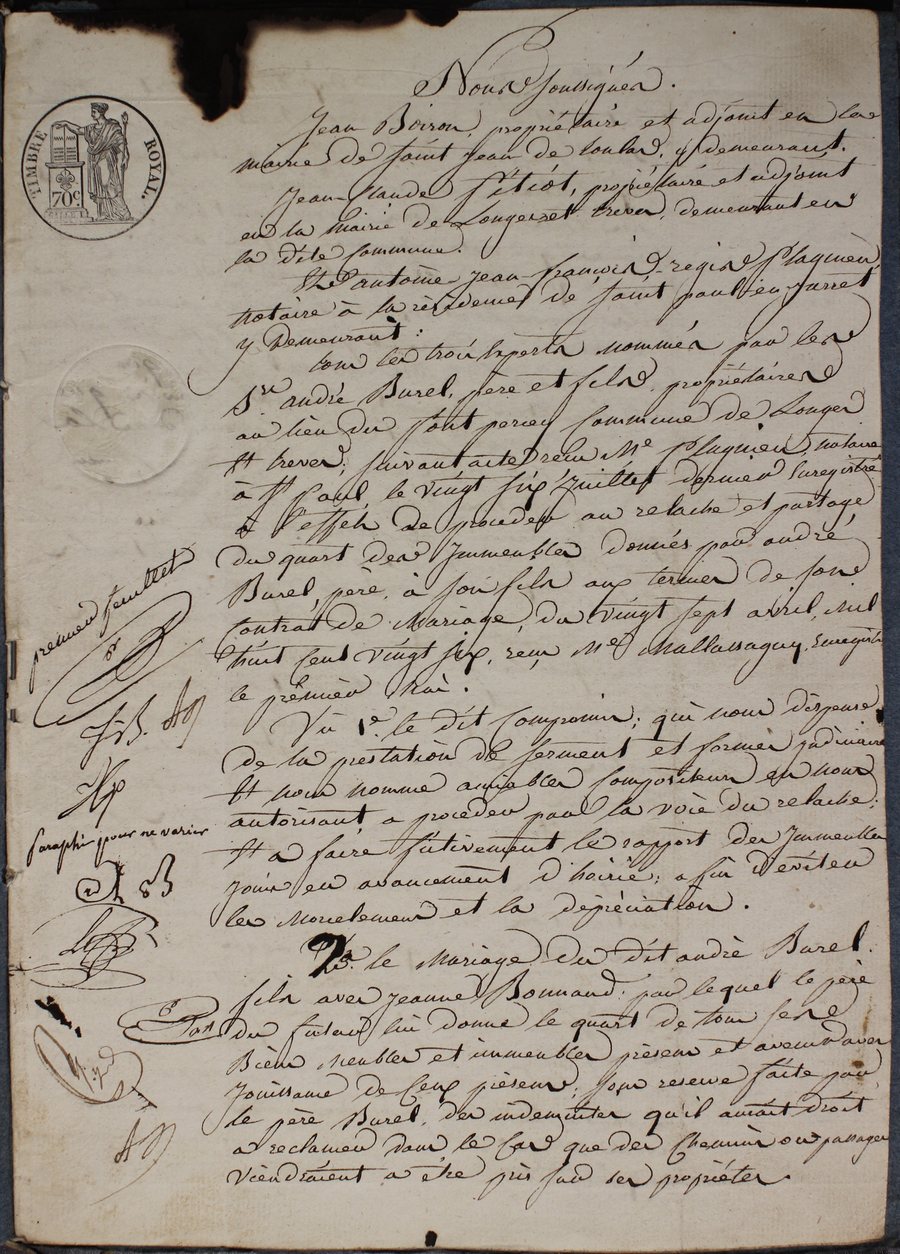 TIMBRE ROYAL.
70c
Nous soussignés.
Jean Boiron, propriétaire et adjoint en la
mairie de saint jean de toulas, y demeurant.
Jean-Claude Pitiot, propriétaire et adjoint
en la Mairie de Longes et treves, demeurant en
la dite Commune.
Et antoine jean-françois-regis Plagnieu
notaire à la résidence de saint paul-en-jarret
y Demeurant:
tous les trois Experts nommés par les
Srs. andré Burel, père et fils, propriétaires
au lieu du font percey Commune de Longes
Et treves; suivant acte reçu Me. Plagnieu, notaire
à St. Paul, le vingt six juillet dernier Enregistré
à l'effet de proceder au relache et partage
du quart des Immeubles donnés par andré
Burel, père, à son fils aux termes de son
Contrat de Mariage, du vingt sept avril, Mil
huit Cent vingt six, reçu Me. Mallassagny, Enregistré
le prémier Mai.
Vu 1e. le dit Compromis; qui nous dispense
de la prestation de serment et formes judiciaire
Et nous nomme amiables Compositeurs en nous
autorisant a proceder par la voie du relache;
Et a faire fictivement le rapport des Immeubles
jouis en avancement d'hoirie; affin d'éviter
les Morcelemens et la dépréciation.
2e. le Mariage du dit andré Burel
fils avec Jeanne Bonnard: par lequel le père
du futur lui donne le quart de tous ses
Biens Meubles et immeubles présens et avenir avec
Jouissance de Ceux présens, sous reserve faite par
le père Burel, des indemnités qu'il aurait droit
a reclamer dans le Cas que des Chemins ou passages
viendraient a être pris sur ses propriétés.
premier feuillet
J.B.
Paraphé pour ne varier